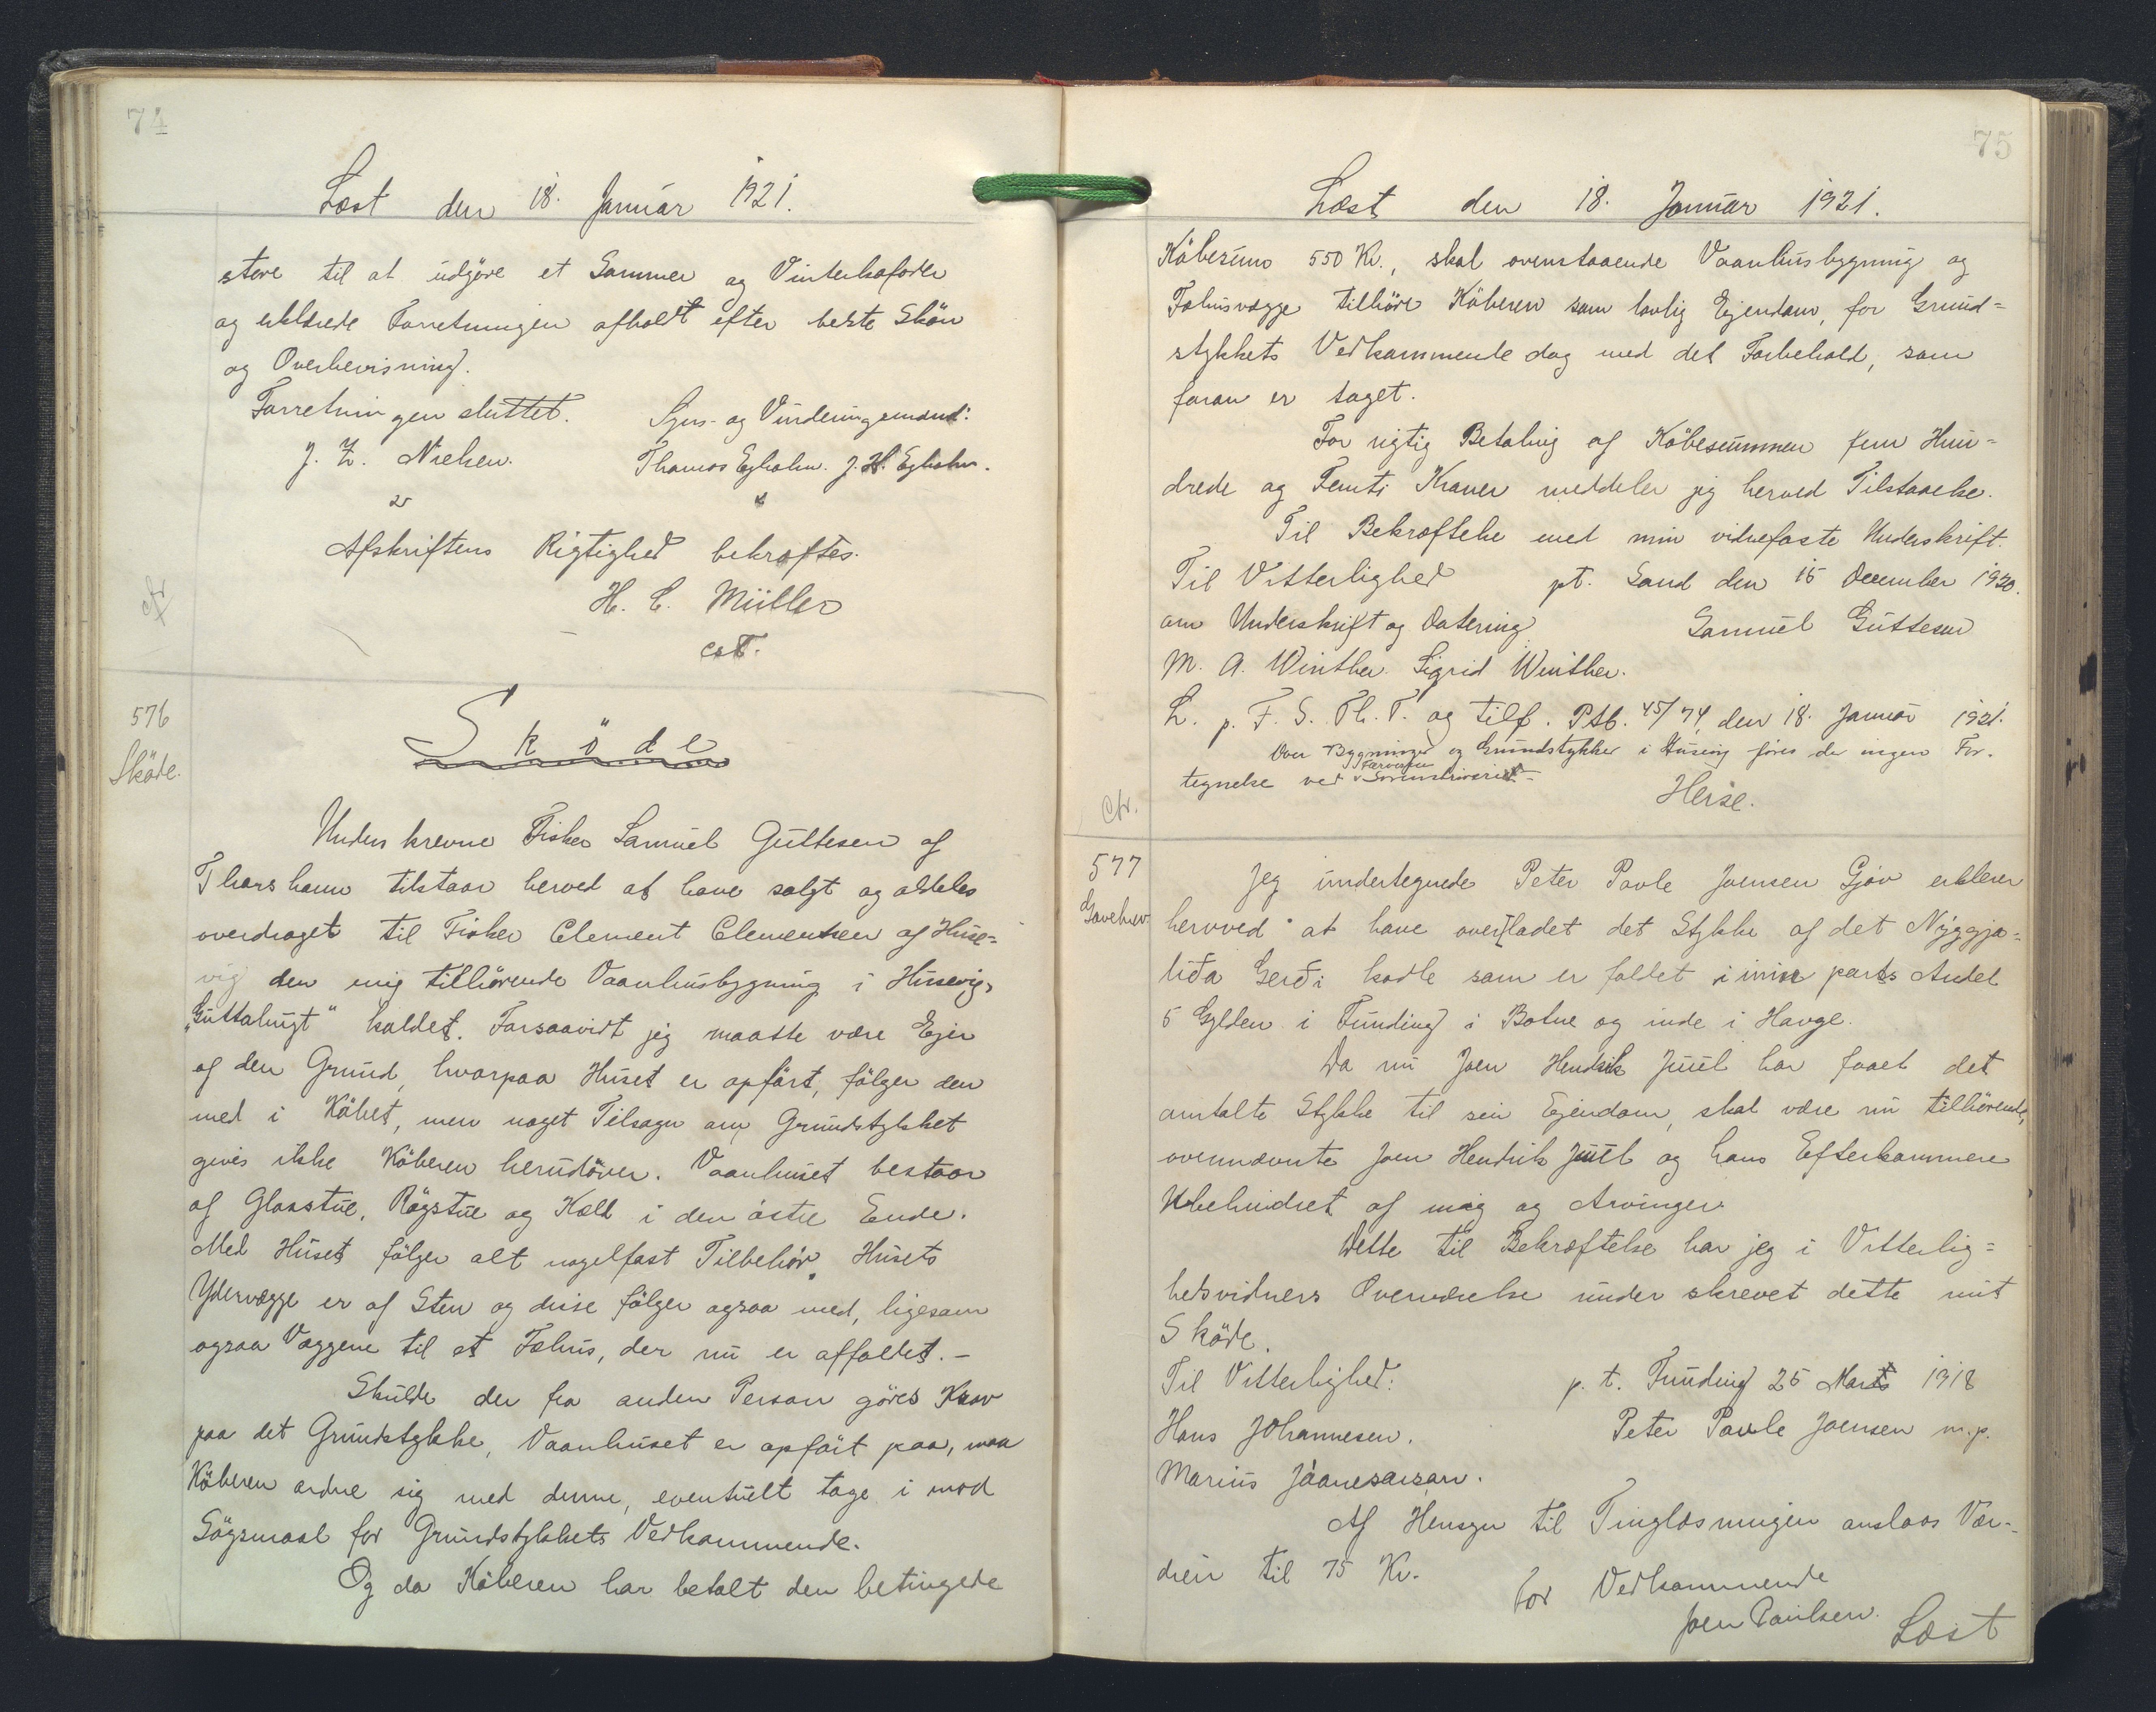 74
Læst den 18. Januar 1921.
store til at udgöre et Sommer og Vinterkofoder
og erklærede Forretningen afholdt efter bedste Skön
og Overbevisning.
Forretningen sluttet. Syns- og Vurderingsmænd:
J. Z. Nielsen. Thomas Egholm. J. H. Egholm.
Afskriftens Rigtighed bekræftes.
H. C. Müller
cst.
cfr
576
Sköde.
Sköde
Underskrevne Fisker Samuel Guttesen af
Thorshavn tilstaar herved at have solgt og aldeles
overdraget til Fisker Clement Clementsen af Huse=
vig den mig tilhörende Vaanhusbygning i Husevig,
"Guttahugt" kaldet. Forsaavidt jeg maatte være Ejer
af den Grund, hvorpaa Huset er opfört, fölger den
med i Köbet, men noget Tilsagn om Grundstykket
gives ikke Köberen herudöver. Vaanhuset bestaar
af Glasstue, Rögstue og Kæld i den östre Ende.
Med Huset fölger alt nagelfast Tilbehör. Husets
Ydervægge er af Sten og disse fölger ogsaa med, ligesom
ogsaa Væggene til et Fæhus, der nu er affaldet.-
Skulde der fra anden Person göres Krav
paa det Grundstykke, Vaanhuset er opfört paa, maa
Köberen ordne sig med denne, eventuelt tage i mod
Sögsmaal for Grundstykkets Vedkommende.
Og da Köberen har betalt den betingede
75
Læst den 18. Januar 1921.
Köbesum 550 Kr., skal ovenstaaende Vaanhusbygning og
Fæhusvægge tilhöre Köberen som lovlig Ejendom, for Grund=
stykkets Vedkommende dog med det Forbehold, som
foran er taget.
For rigtig Betaling af Köbesummen fem Hun=
drede og Femti Kroner meddeler jeg herved Tilstaaelse.
Til Bekræftelse med min vidnefaste Underskrift.
Til Vitterlighed pt. Sand den 15 December 1920.
om Underskrift og Datering Samuel Guttesen
M. A. Winther. Sigrid Winther.
L. p. F. S. Th. T. og tilf. Ptb. 45/74, den 18. Januar 1921.
Over Bygninger og Grundstykker i Husevig föres der ingen For-
tegnelse ved Færöernes Sorenskriveri.-
Heise.
Cfr.
577
Gavebrev
Jeg undertegnede Peter Pavle Joensen Gjov erklerer
hervved at have overladet det Stykke af det Nýggja=
liða Gerði kadle som er faldet i min parts Andel
5 Gylden i Funding i Botne og inde i Havge.
Da nu Joen Hendrik Juul har faaet det
omtalte Stykke til sin Ejendom, skal være nu tilhörende,
ovennævnte Joen Hendrik Juul og hans Efterkommere
Ubehindret af mig og Arvinger.
Dette til Bekræftelse har jeg i Vitterlig=
hedsvidners Overværelse under skrevet dette mit
Sköde.
Til Vitterlighed: p. t. Funding 25 Marts 1918
Hans Johannesen. Peter Pavle Joensen m.p.
Marius Jóanesarson.
Af Hensyn til Tinglæsningen anslaas Vær-
dien til 75 Kr.
for Vedkommende
Joen Poulsen.
Læst